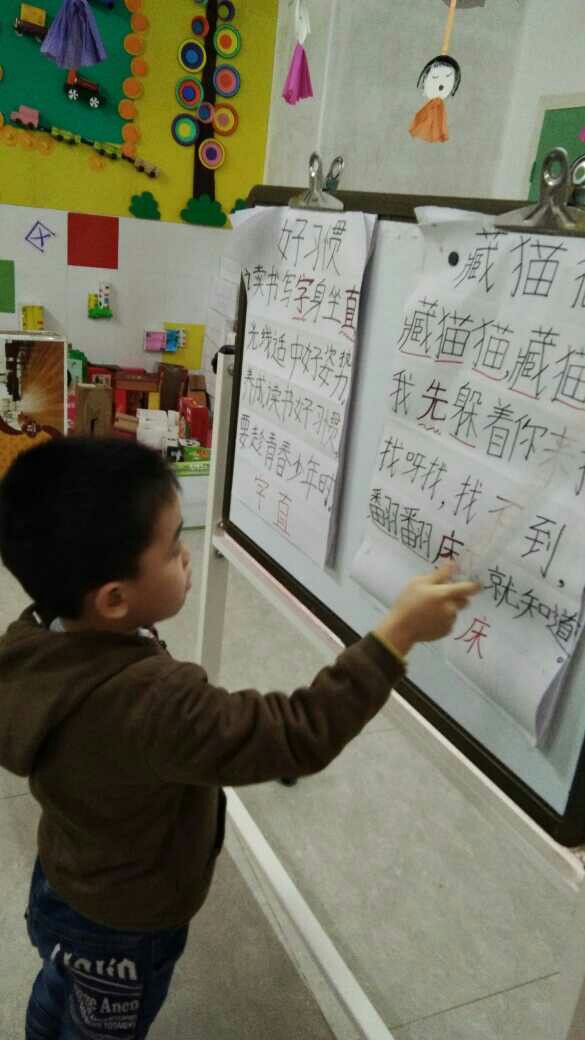 好习惯
读书写字身坐直
光线适中好姿势,
养成读书好习惯,
要趁青春少年时,
字直
藏猫
藏猫猫,藏猫
我先躲着你来
找呀找,找不到,
翻翻床就知道。
床
Anen